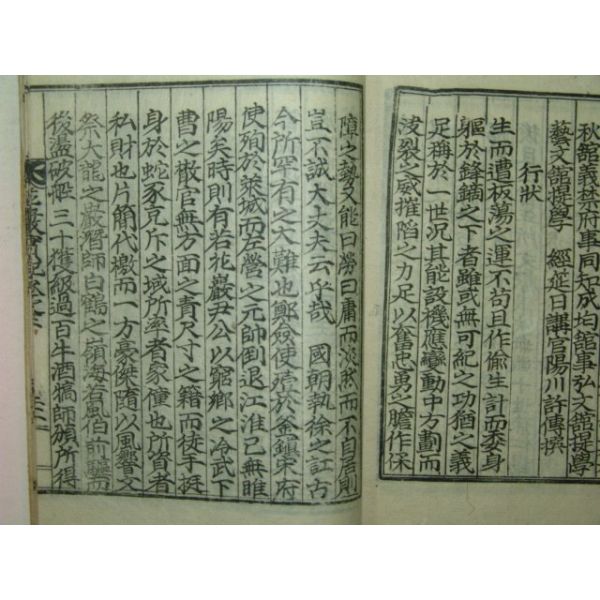 秋館義禁府事同知成均館事弘文館提學
藝文館提學　經筵日講官陽川許傳撰
行狀
生而遭板蕩之運不苟且作偸生計而委身
軀於鋒鏑之下者雖或無可紀之功猶之義
足稱於一世況其能設機應變動中方劃而
浚裂之威摧陷之力足以奮忠勇之膽作保
障之勢又能曰勞曰庸而淡然而不自居則
豈不誠大丈夫云乎哉　國朝執徐之訌古
今所罕有之大難也鄭僉使殪於釜鎭宋府
使殉於萊城而左營之元帥倒退江淮已無睢
陽矣時則有若花巖尹公以窮鄉之冷武下
曹之散官無方面之責尺寸之籍而徒手挺
身於蛇豕充斥之域所率者僮也所資者
私財也片簡代檄而一方豪傑隨以風響文
祭大龍之巖潛師白鶴之嶺海若風伯前驅而
後盪破船三十獲級過百牛酒犒師頒所得